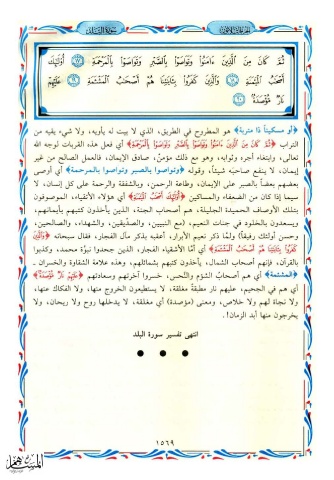 الجزء الثلاثون
سورة البلد
ثُمَّ كَانَ مِنَ الَّذِينَ ءَامَنُوا وَتَوَاصَوْا بِالصَّبْرِ وَتَوَاصَوْا بِالْمَرْحَمَةِ ١٧ أُولَٰئِكَ
أَصْحَابُ الْمَيْمَنَةِ ١٨ وَالَّذِينَ كَفَرُوا بِآيَاتِنَا هُمْ أَصْحَابُ الْمَشْأَمَةِ ١٩ عَلَيْهِمْ
نَارٌ مُؤْصَدَةٌ ٢٠
﴿أو مسكيناً ذا متربة﴾ هو المطروح في الطريق، الذي لا بيت له يأويه، ولا شيء يقيه من
التراب ﴿ثُمَّ كَانَ مِنَ الَّذِينَ ءَامَنُوا وَتَوَاصَوْا بِالصَّبْرِ وَتَوَاصَوْا بِالْمَرْحَمَةِ﴾ أي فعل هذه القربات لوجه الله
تعالى، وابتغاء أجره وثوابه، وهو مع ذلك مؤمنٌ، صادق الإيمان، فالعمل الصالح من غير
إيمان، لا ينفع صاحبه شيئاً، وقوله ﴿وتواصوا بالصبر وتواصوا بالمرحمة﴾ أي أوصى
بعضهم بعضاً بالصبر على الإيمان، وطاعة الرحمن، وبالشفقة والرحمة على كل إنسان، لا
سيما إذا كان من الضعفاء والمساكين ﴿أُولَٰئِكَ أَصْحَابُ الْمَيْمَنَةِ﴾ أي هؤلاء الأتقياء، الموصوفون
بتلك الأوصاف الحميدة الجليلة، هم أصحاب الجنة، الذين يأخذون كتبهم بأيمانهم،
ويسعدون بالخلود في جنات النعيم، (مع النبيين، والصدّيقين، والشهداء، والصالحين،
وحسن أولئك رفيقاً) ولمَّا ذكر نعيم الأبرار، أعقبه بذكر مآل الفجار، فقال سبحانه ﴿وَالَّذِينَ
كَفَرُوا بِآيَاتِنَا هُمْ أَصْحَابُ الْمَشْأَمَةِ﴾ أي أمَّا الأشقياء الفجار، الذين جحدوا نبوَّة محمد، وكذبوا
بالقرآن، فإنهم أصحاب الشمال، يأخذون كتبهم بشمائلهم، وهذه علامة الشقاوة والخسران ـ
﴿المشئمة﴾ أي هم أصحابُ الشؤم والنَّحس، خسروا آخرتهم وسعادتهم ﴿عَلَيْهِمْ نَارٌ مُؤْصَدَةٌ﴾
أي هم في الجحيم، عليهم نار مطبقةٌ مغلقة، لا يستطيعون الخروج منها، ولا الفكاك عنها،
ولا نجاة لهم ولا خلاص، ومعنى (مؤصدة) أي مغلقة، لا يدخلها روح ولا ريحان، ولا
يخرجون منها أبد الزمان!.
انتهى تفسير سورة البلد
١٥٦٩